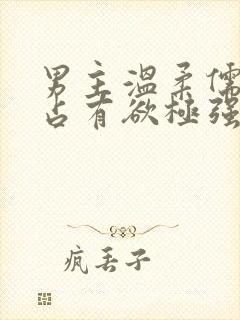 男主温柔儒
占有欲極强
疯丢子